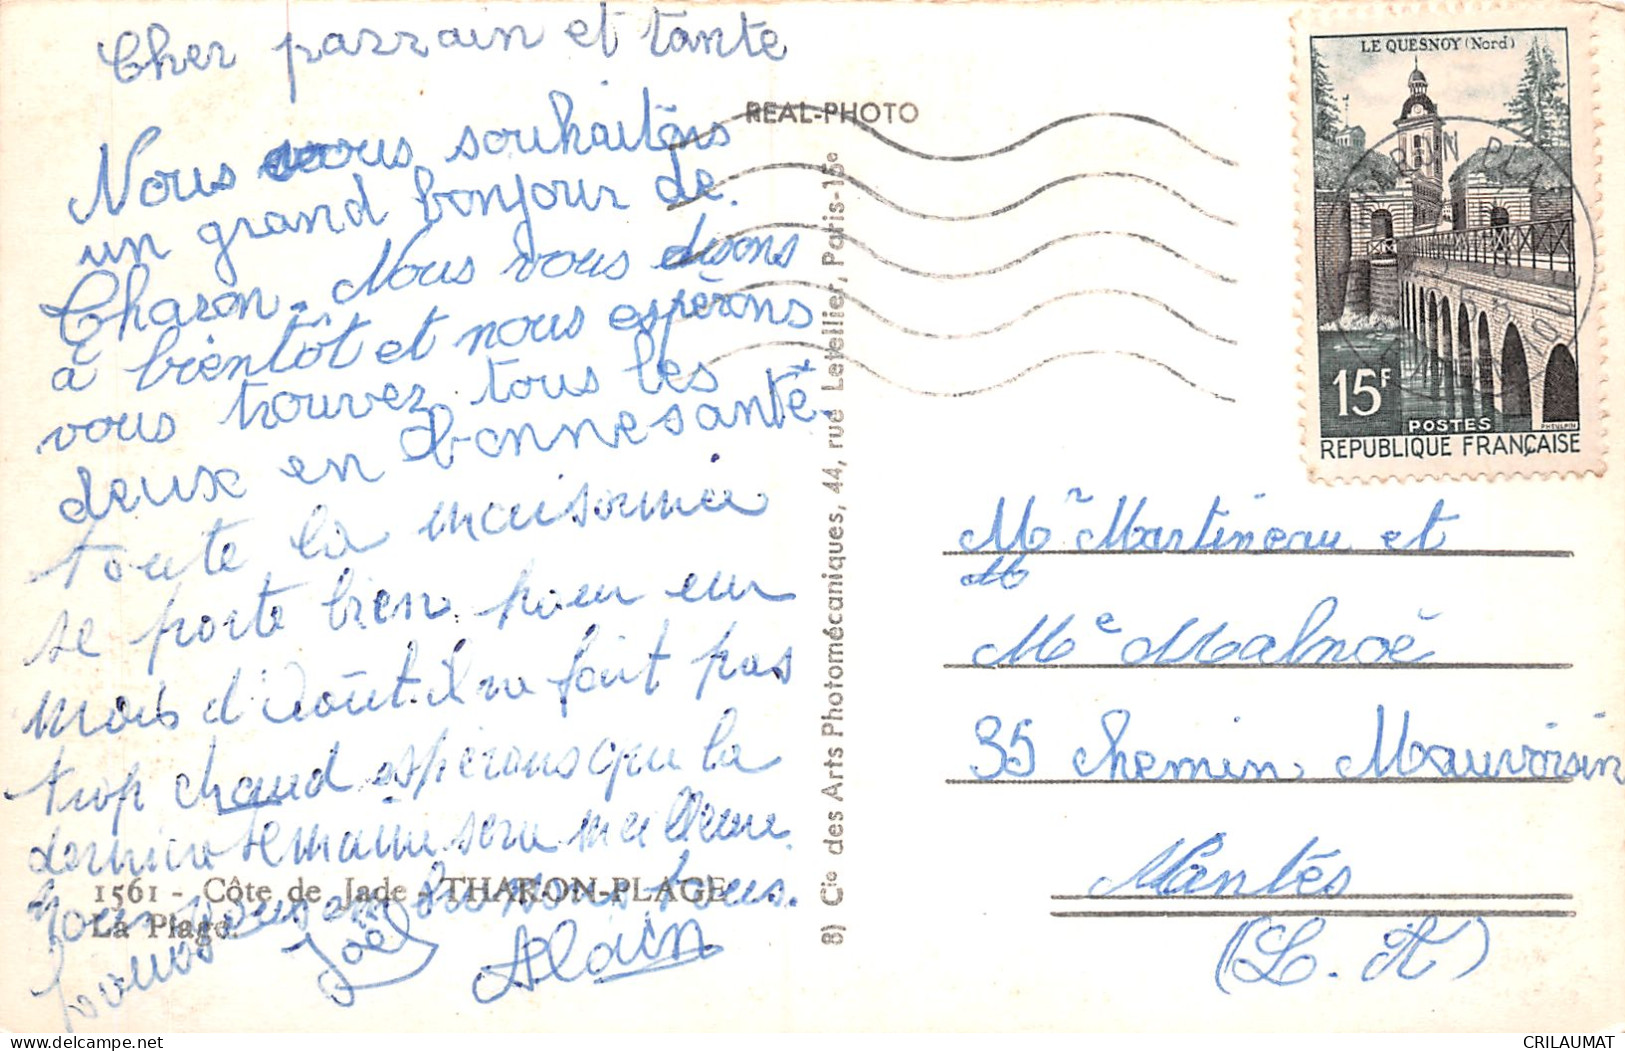 Cher parrain et tante
Nous vous souhaitons
un grand bonjour de
Tharon. Nous vous disons
à bientôt et nous espérons
vous trouvez tous les
deux en bonne santé.
toute la maisonnée
se porte bien pour un
mois d'Août. il ne fait pas
trop chaud espérons que la
dernière semaine sera meilleure.
nous vous embrassons tous.
Joël
Alain
1561 - Côte de Jade - THARON-PLAGE
La Plage.
REAL-PHOTO
8) Cie des Arts Photomécaniques, 44, rue Letellier, Paris-15e
LE QUESNOY (Nord)
THARON PLAGE
15F
POSTES
PHEULPIN
REPUBLIQUE FRANÇAISE
Mr Martineau et
M
Me Malnoë
35 Chemin Mauvoisin
Nantes
(L. A)
CRILAUMAT